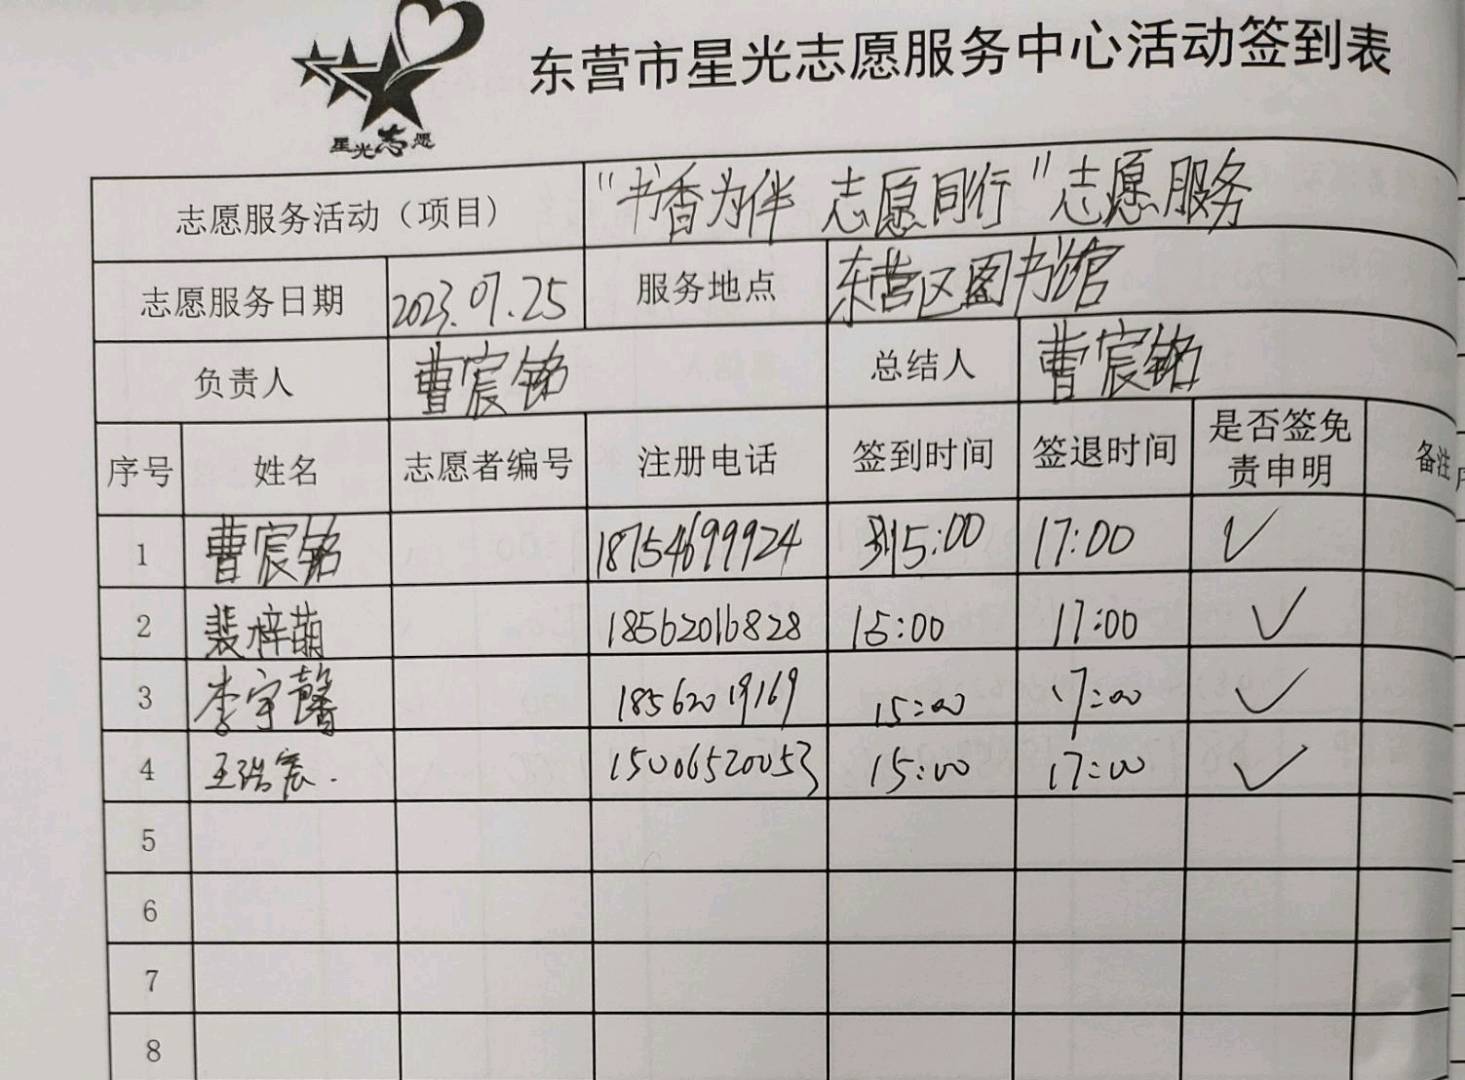 东营市星光志愿服务中心活动签到表
星光志愿
志愿服务活动（项目） “书香为伴 志愿同行”志愿服务
志愿服务日期 2023.07.25 服务地点 东营区图书馆
负责人 曹宸铭 总结人 曹宸铭
序号 姓名 志愿者编号 注册电话 签到时间 签退时间 是否签免责申明 备注
1 曹宸铭 18754699924 15:00 17:00 ✓
2 裴梓萌 18562016828 15:00 17:00 ✓
3 李宇馨 18562019169 15:00 17:00 ✓
4 王浩宸. 15006520053 15:00 17:00 ✓
5
6
7
8